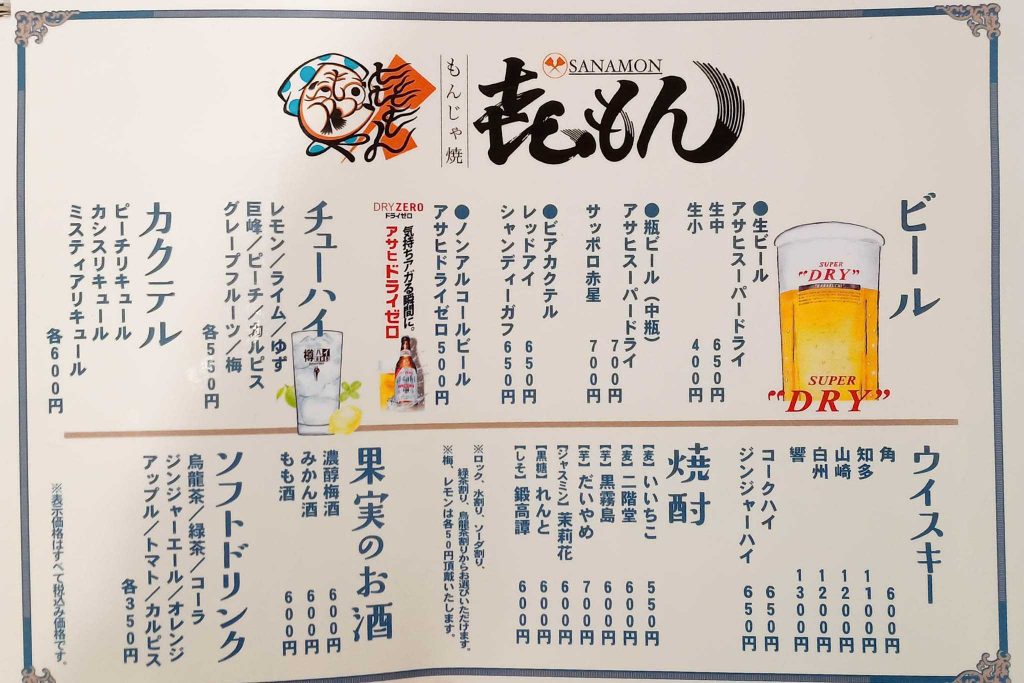 SANAMON
もんじゃ焼
㐂もん
ビール
●生ビール
アサヒスーパードライ
生中 650円
生小 400円
●瓶ビール（中瓶）
アサヒスーパードライ 700円
サッポロ赤星 700円
●ビアカクテル
レッドアイ 650円
シャンディーガフ 650円
●ノンアルコールビール
アサヒドライゼロ 500円
SUPER
"DRY"
SUPER
"DRY"
DRY ZERO
ドライゼロ
気持ちアガる瞬間に。
アサヒドライゼロ
チューハイ
レモン／ライム／ゆず
巨峰／ピーチ／カルピス
グレープフルーツ／梅
各550円
カクテル
ピーチリキュール
カシスリキュール
ミスティアリキュール
各600円
ウイスキー
角 600円
知多 1100円
山崎 1200円
白州 1200円
響 1300円
コークハイ 650円
ジンジャーハイ 650円
焼酎
【麦】いいちこ 550円
【麦】二階堂 600円
【芋】黒霧島 600円
【芋】だいやめ 700円
【ジャスミン】茉莉花 600円
【黒糖】れんと 600円
【しそ】鍛高譚 600円
※ロック、水割り、ソーダ割り、
緑茶割り、烏龍茶割りからお選びいただけます。
※梅、レモンは各50円頂戴いたします。
果実のお酒
濃醇梅酒 600円
みかん酒 600円
もも酒 600円
ソフトドリンク
烏龍茶／緑茶／コーラ
ジンジャーエール／オレンジ
アップル／トマト／カルピス
各350円
※表示価格はすべて税込み価格です。